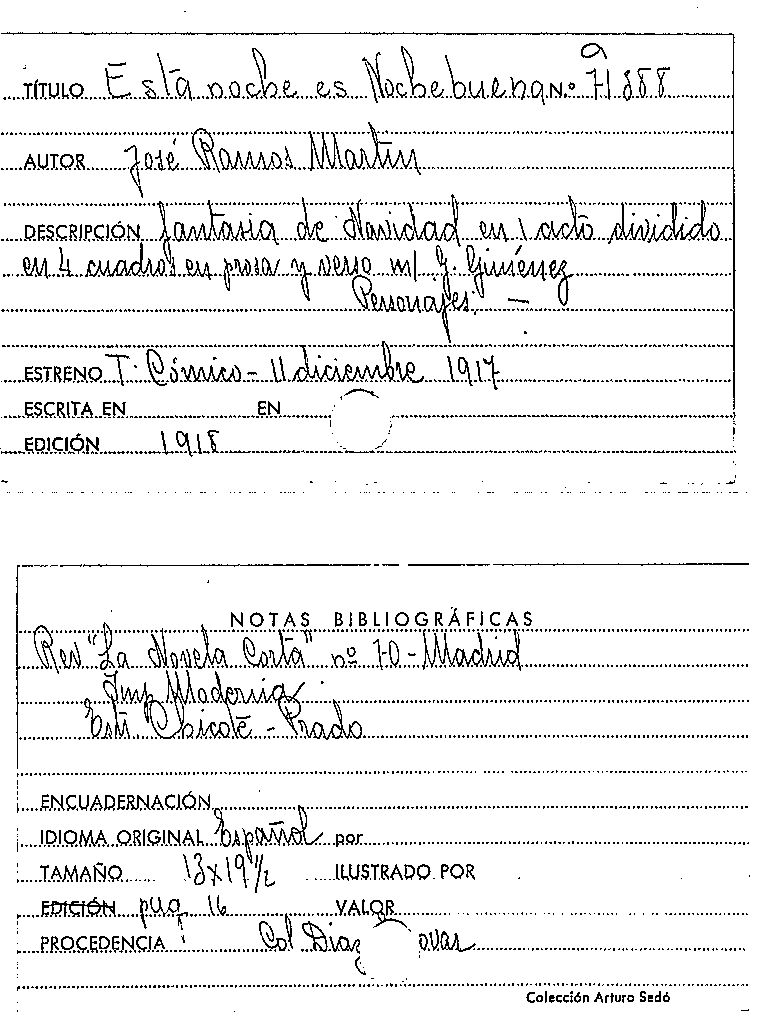 a
TÍTULO Esta noche es Nochebuena N.º 71388
AUTOR José Ramos Martin
DESCRIPCIÓN fantasia de Navidad en 1 acto dividido
en 4 cuadros en prosa y verso m/ G. Giménez
Personajes. —
ESTRENO T. Cómico - 11 diciembre 1917
ESCRITA EN EN
EDICIÓN 1918
NOTAS BIBLIOGRÁFICAS
Rev "La Novela Corta" nº 70 - Madrid
Imp Moderna
Chicote - Prado
ENCUADERNACIÓN
IDIOMA ORIGINAL Español por
TAMAÑO 13x19½ ILUSTRADO POR
EDICIÓN pag. 16 VALOR
PROCEDENCIA Col Diaz ovar
Colección Arturo Sedó